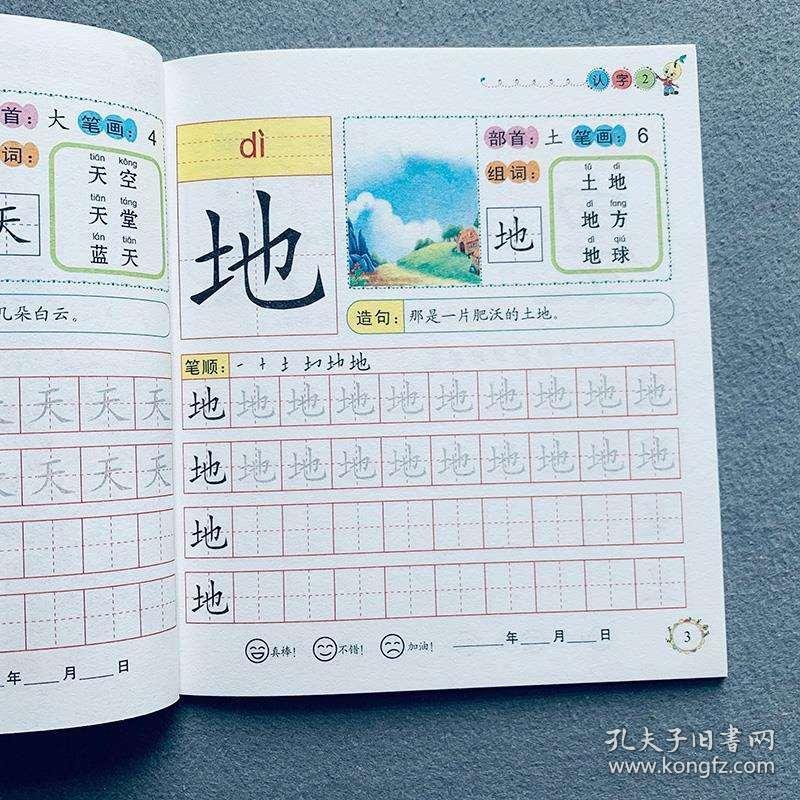 首： 大 笔画： 4
词：
tiān kōng
天 空
tiān táng
天 堂
lán tiān
蓝 天
天
几朵白云。
天 天 天 天
天 天 天 天
年 月 日
认字2
dì
地
部首： 土 笔画： 6
组词：
地
tǔ dì
土 地
dì fang
地 方
dì qiú
地 球
造句： 那是一片肥沃的土地。
笔顺：
地 地 地 地 地 地 地 地 地 地
地 地 地 地 地 地 地 地 地 地
地
地
真棒！ 不错！ 加油！ 年 月 日
3
孔夫子旧書网
www.kongfz.com